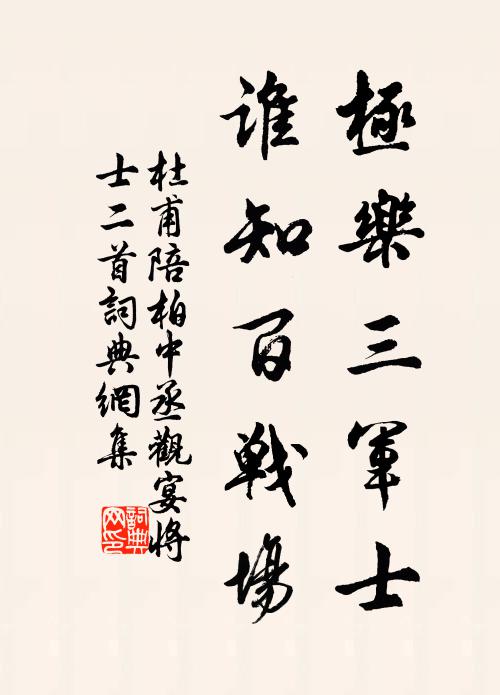 極樂三軍士
誰知百戰場
杜甫陪柏中丞觀宴將
士二首詞典網集
詞典
网印